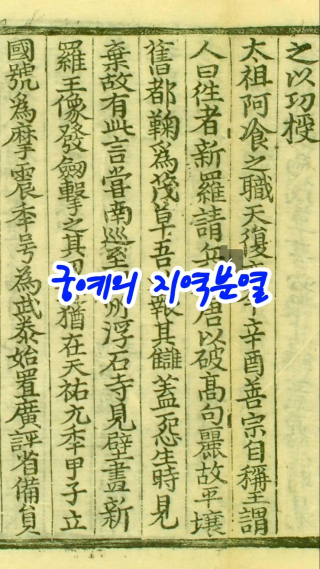 之以功授
太祖阿飡之職天復辛酉善宗自稱王謂
人曰徃者新羅請唐以破高句麗故平壤
舊都鞠爲茂草吾報其讎蓋怨生時見
棄故有此言嘗南巡至州浮石寺見壁畫新
羅王像發劒擊之其猶在天祐元年甲子立
國號爲摩震年号爲武泰始置廣評省備員
궁예의 지역분열